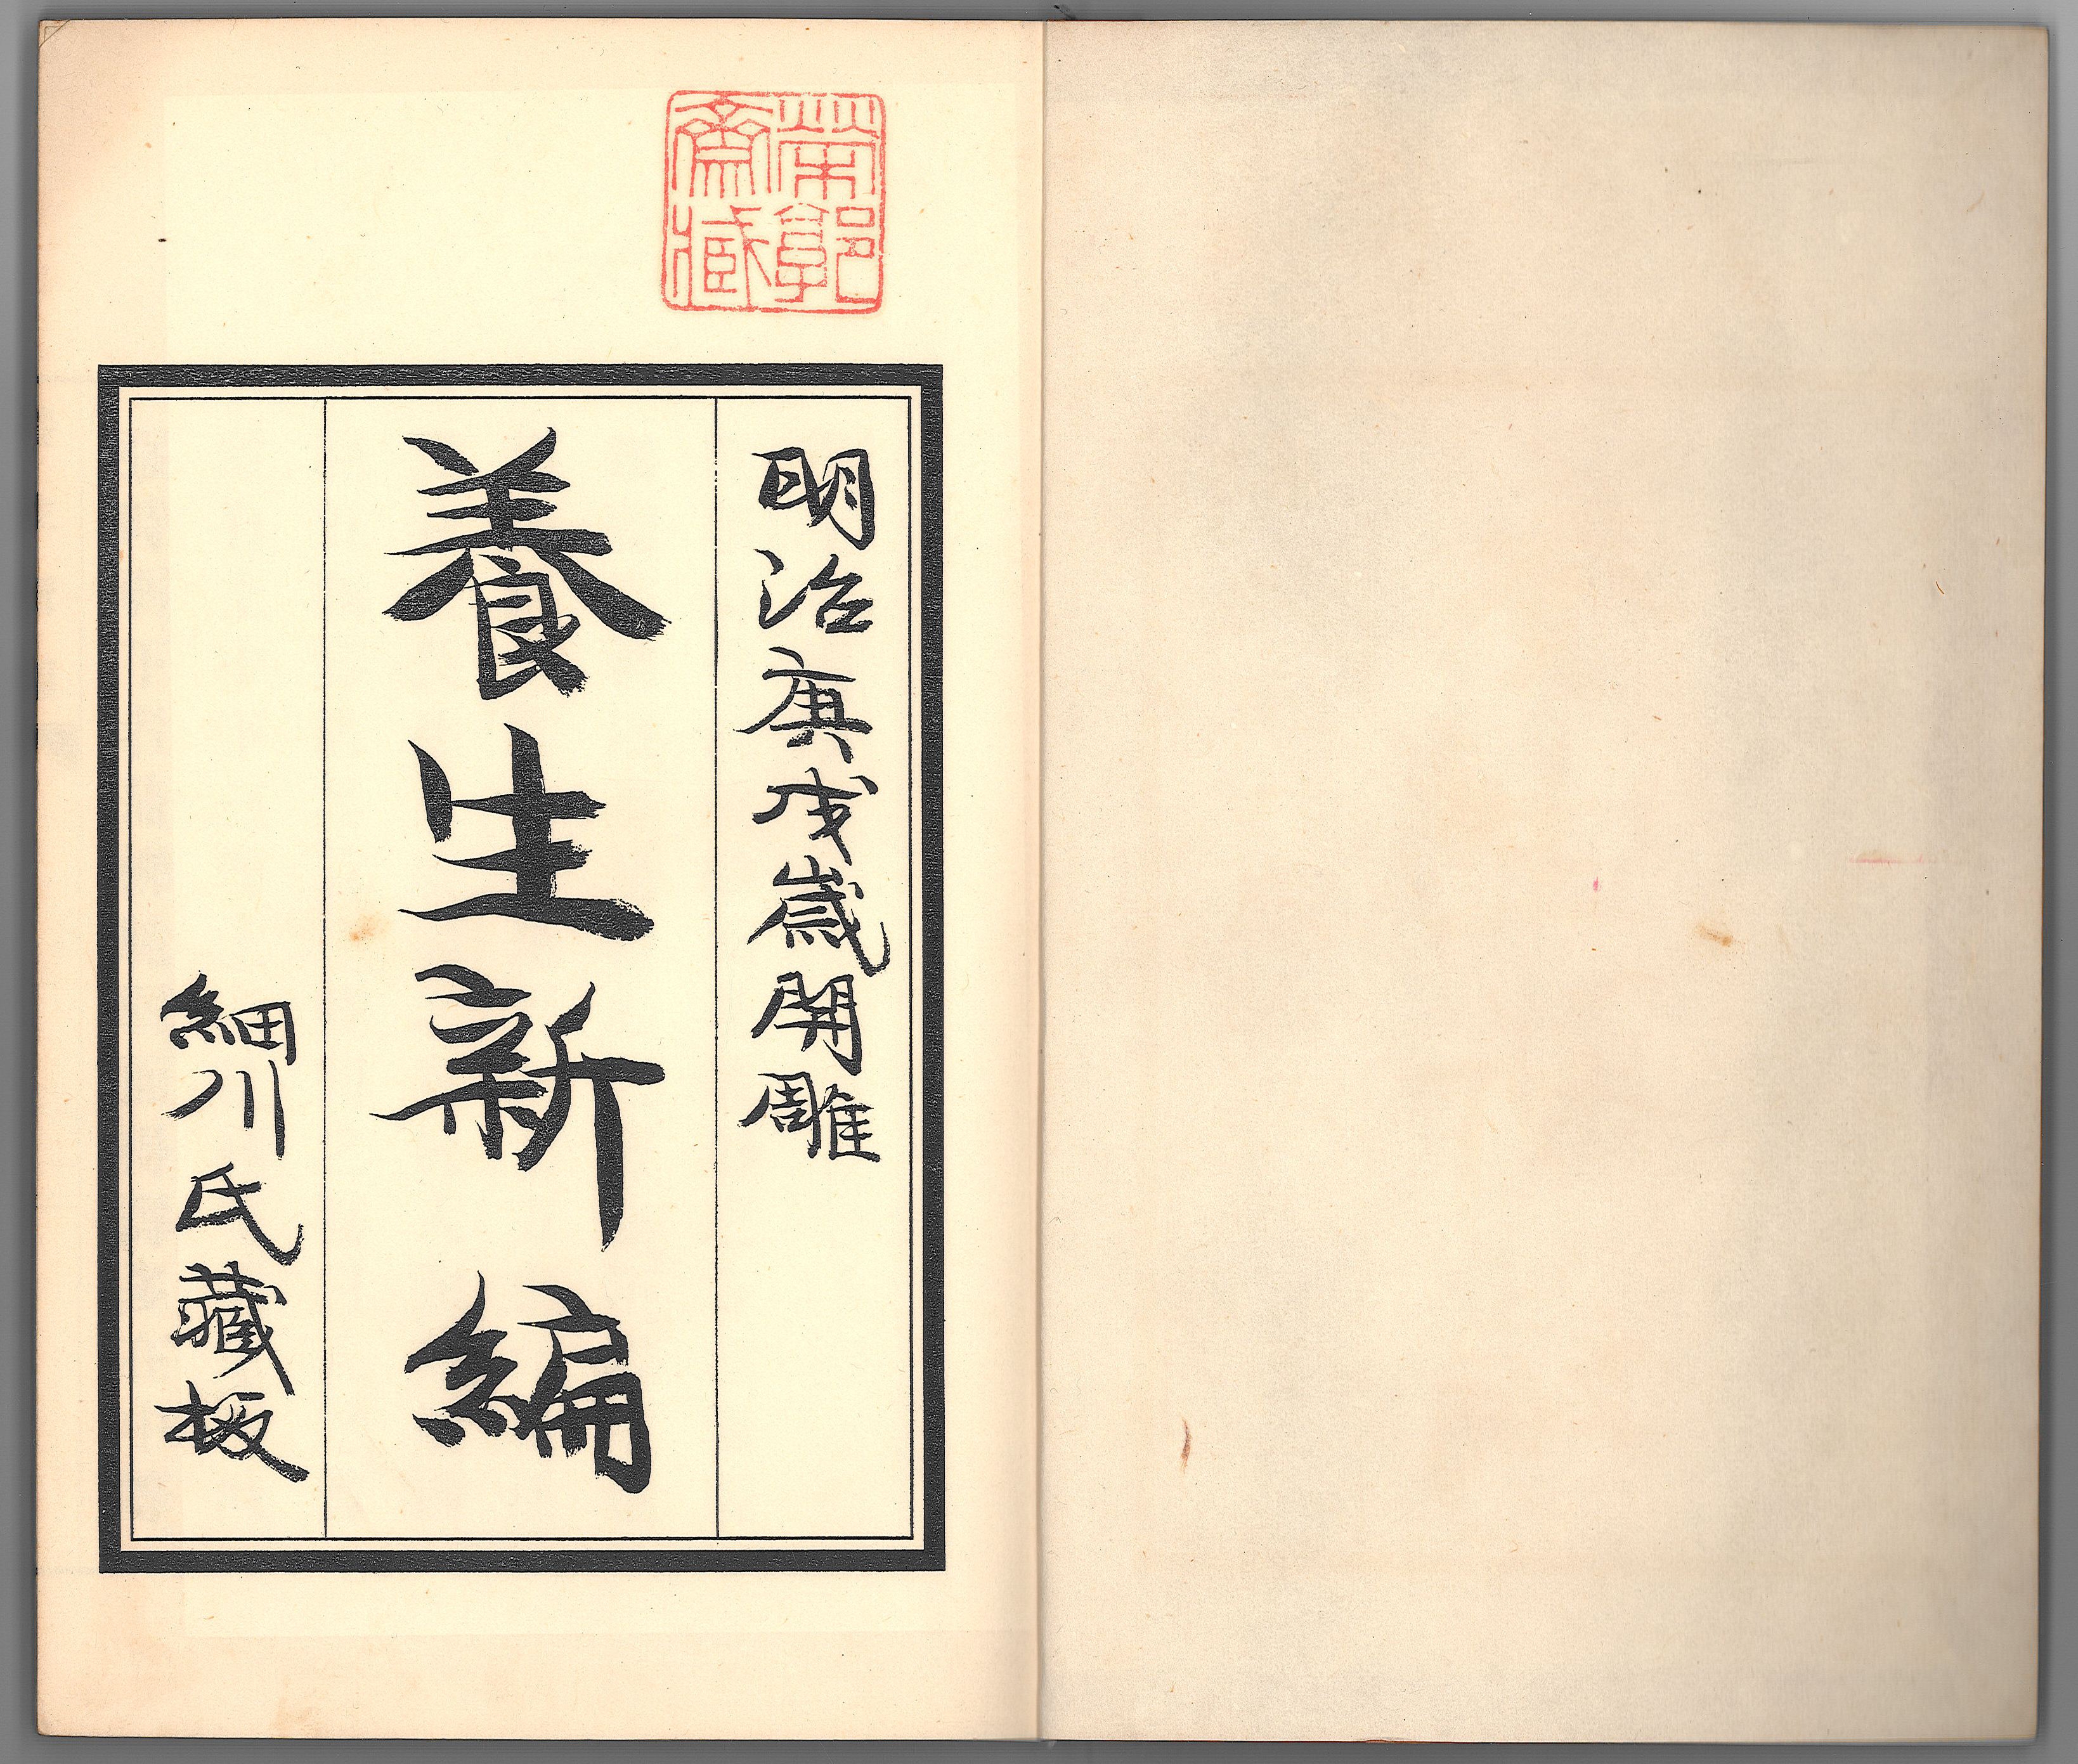 帶郭
齋藏
明治庚戌歲開雕
養生新編
細川氏藏板